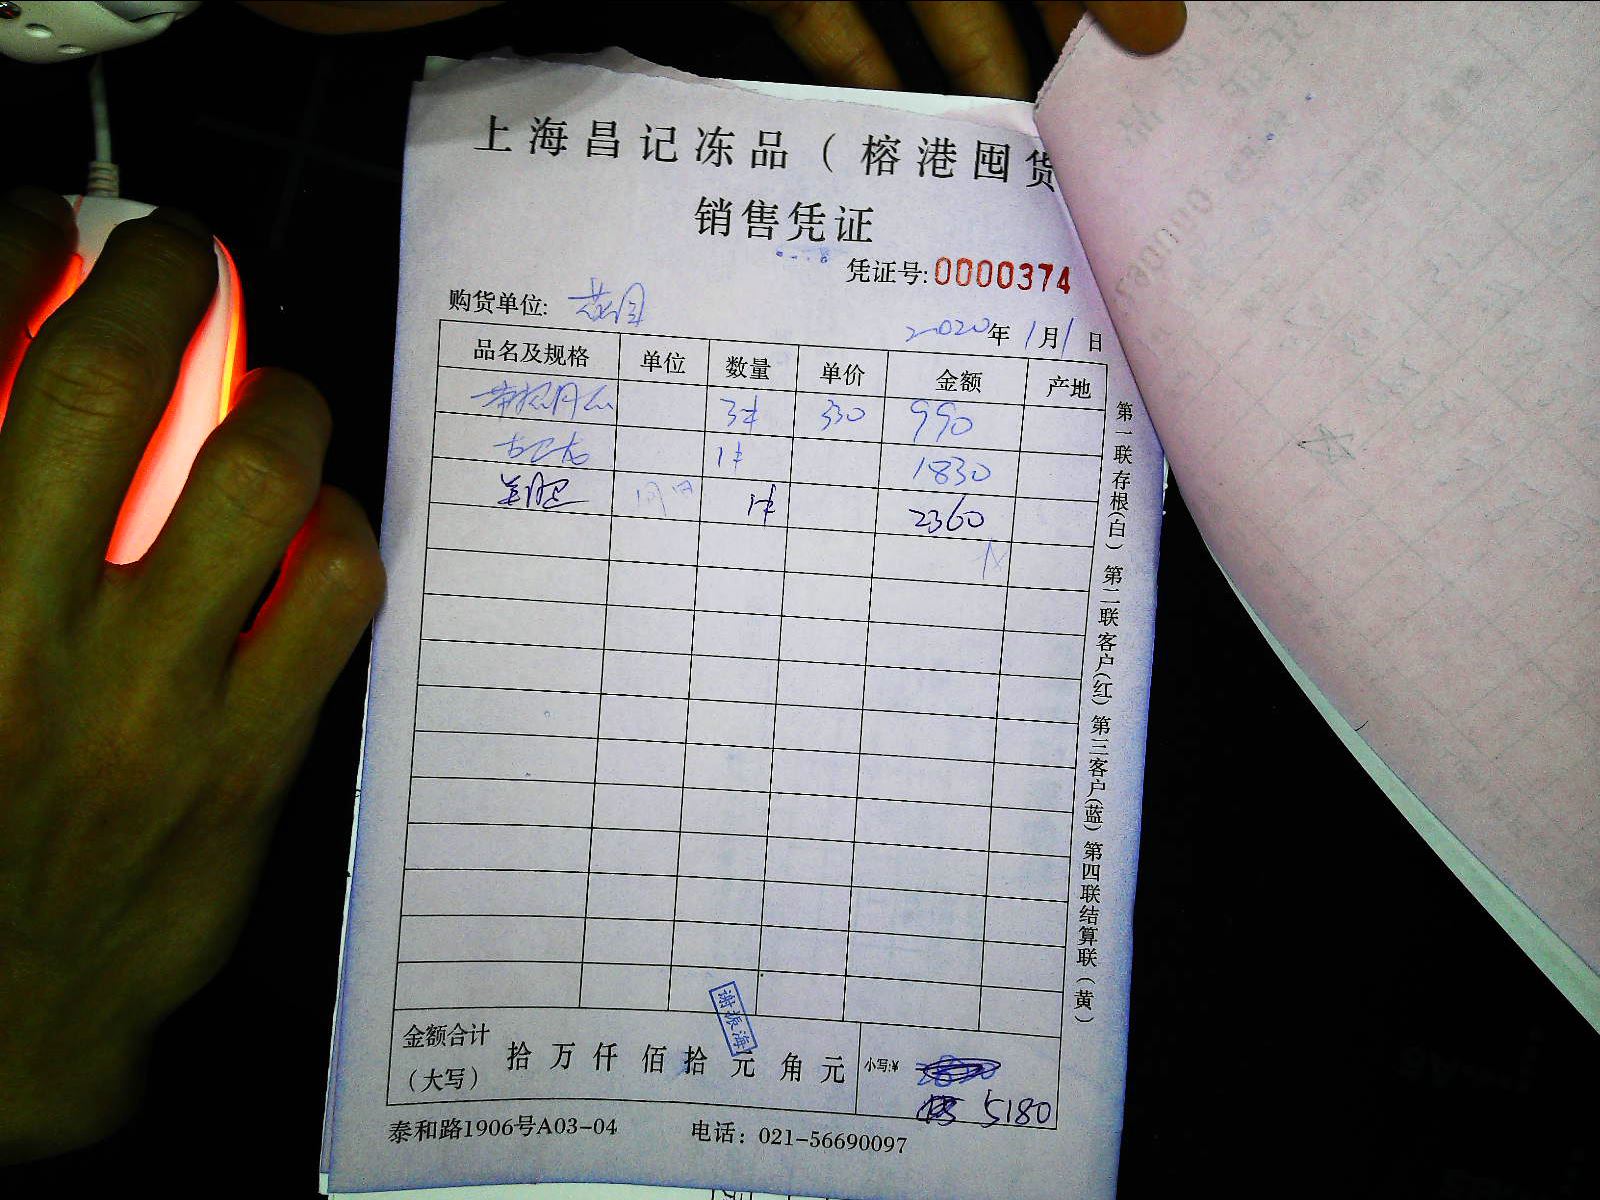 上海昌记冻品（榕港囤货
销售凭证
凭证号:0000374
购货单位:
2020年1月1日
品名及规格 单位 数量 单价 金额 产地
3# 330 990
1# 1830
羊腿 1# 2360
第一联存根(白) 第二联客户(红) 第三客户(蓝) 第四联结算联(黄)
谢振海
金额合计（大写） 拾万仟佰拾元角元 小写:¥
5180
泰和路1906号A03-04 电话：021-56690097